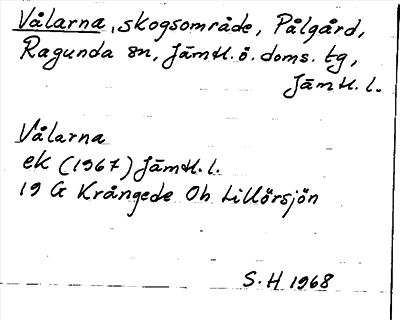 Vålarna, skogsområde, Pålgård,
Ragunda sn, Jämtl. ö. doms. tg,
Jämtl. l.
Vålarna
ek (1967) Jämtl. l.
19 G Krångede Oh Lillörsjön
S. H 1968